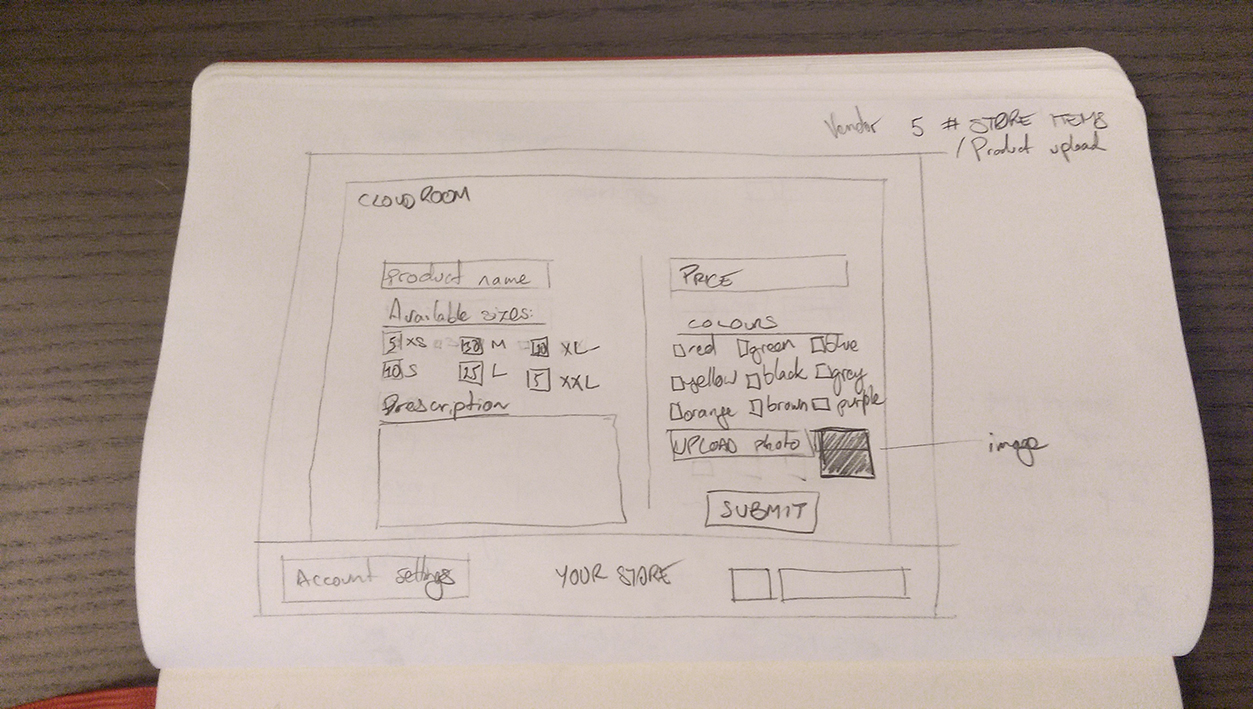 Vendor 5 # STORE ITEMS
/ Product upload
CLOUDROOM
Product name
Available sizes:
5 XS 30 M 10 XL
10 S 25 L 5 XXL
Description
PRICE
COLOURS
red green blue
yellow black grey
orange brown purple
UPLOAD photo
image
SUBMIT
Account settings YOUR STORE